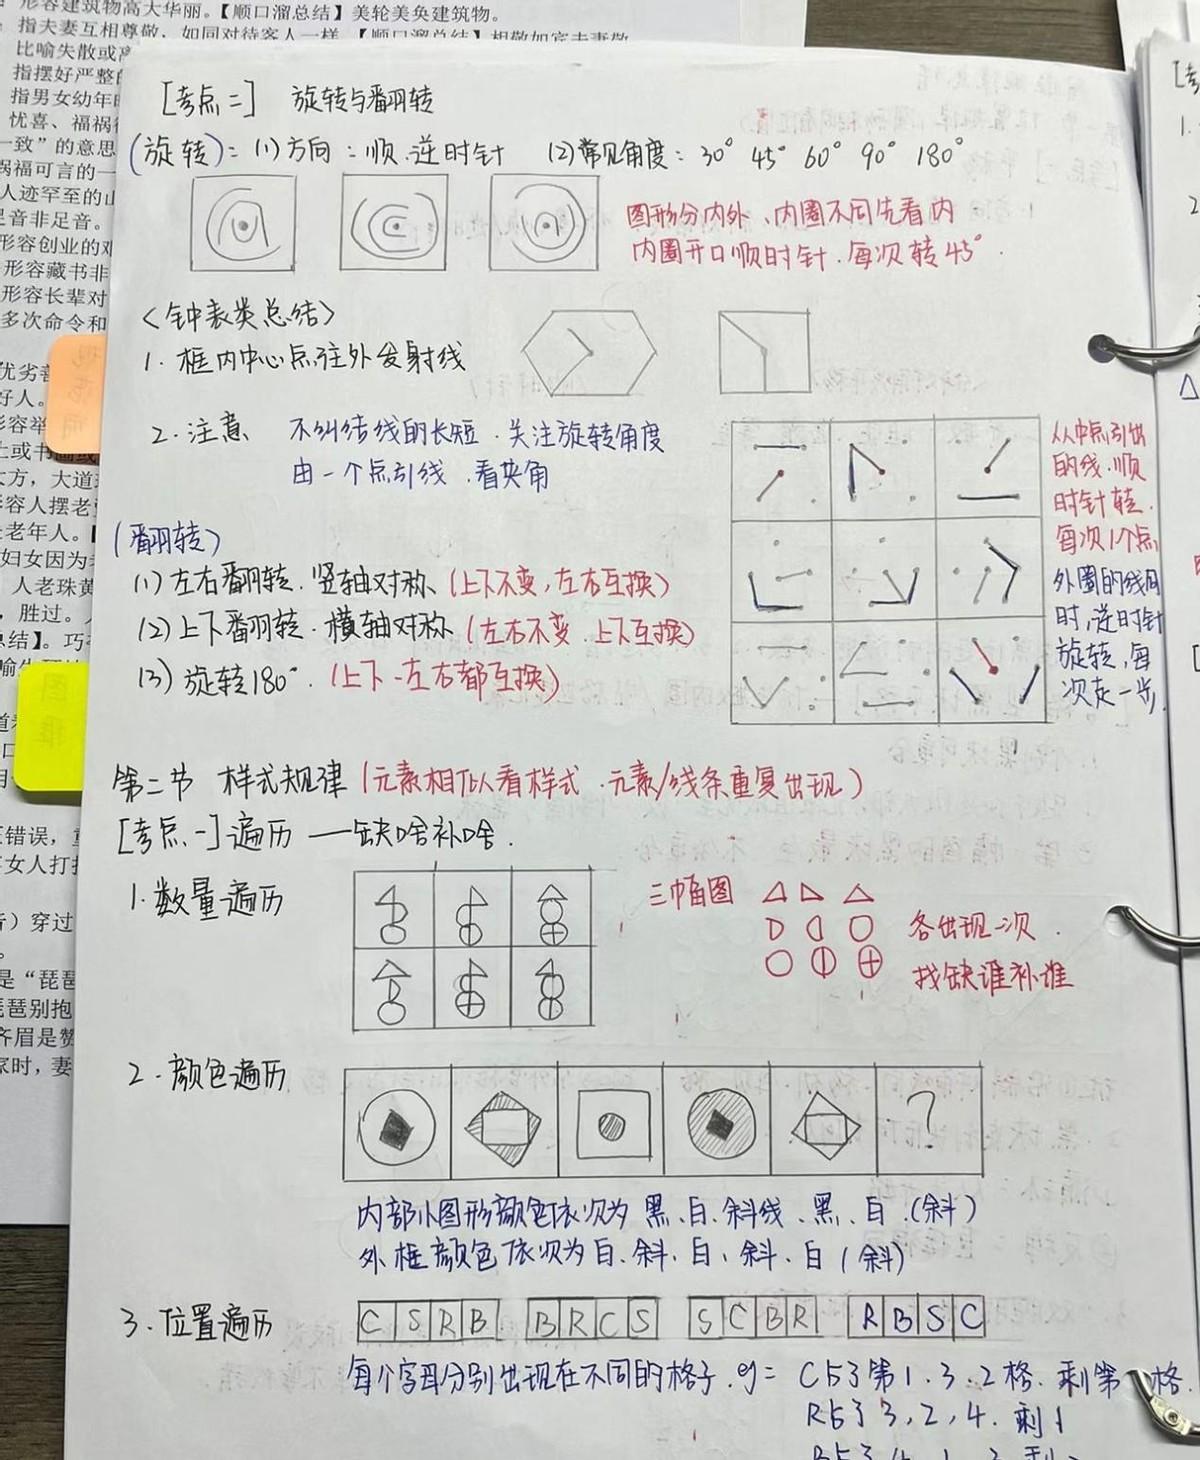 形容建筑物高大华丽。【顺口溜总结】美轮美奂建筑物。
指夫妻互相尊敬，如同对待客人一样。【顺口溜总结】相敬如宾夫妻敬
比喻失散或
指摆好严整
指男女幼年
忧喜、福祸
一致”的意思
祸福可言的一
人迹罕至的山
足音非足音。
形容创业的艰
形容藏书非
形容长辈对
多次命令和
[考点二] 旋转与翻转
(旋转): (1)方向: 顺.逆时针 (2)常见角度: 30° 45° 60° 90° 180°
图形分内外、内圈不同先看内
内圈开口顺时针.每次转45°.
<钟表类总结>
1. 框内中心点往外发射线
2. 注意 不纠结线的长短.关注旋转角度
由一个点引线.看夹角
从中点引出
的线.顺
时针转.
每次1个点
外圈的线同
时,逆时针
旋转,每
次走一步.
(翻转)
(1)左右翻转.竖轴对称(上下不变,左右互换)
(2)上下翻转.横轴对称(左右不变.上下互换)
(3)旋转180°.(上下.左右都互换)
第二节 样式规律(元素相似看样式.元素/线条重复出现)
[考点一]遍历——缺啥补啥.
1.数量遍历
三幅图
各出现一次.
找缺谁补谁
2.颜色遍历
?
内部小图形颜色依次为 黑、白、斜线、黑、白.(斜)
外框颜色依次为白、斜、白、斜、白(斜)
3.位置遍历
C S R B B R C S S C B R R B S C
每个字母分别出现在不同的格子.eg= C占了第1.3.2格.剩第 格.
R占了3,2,4.剩1